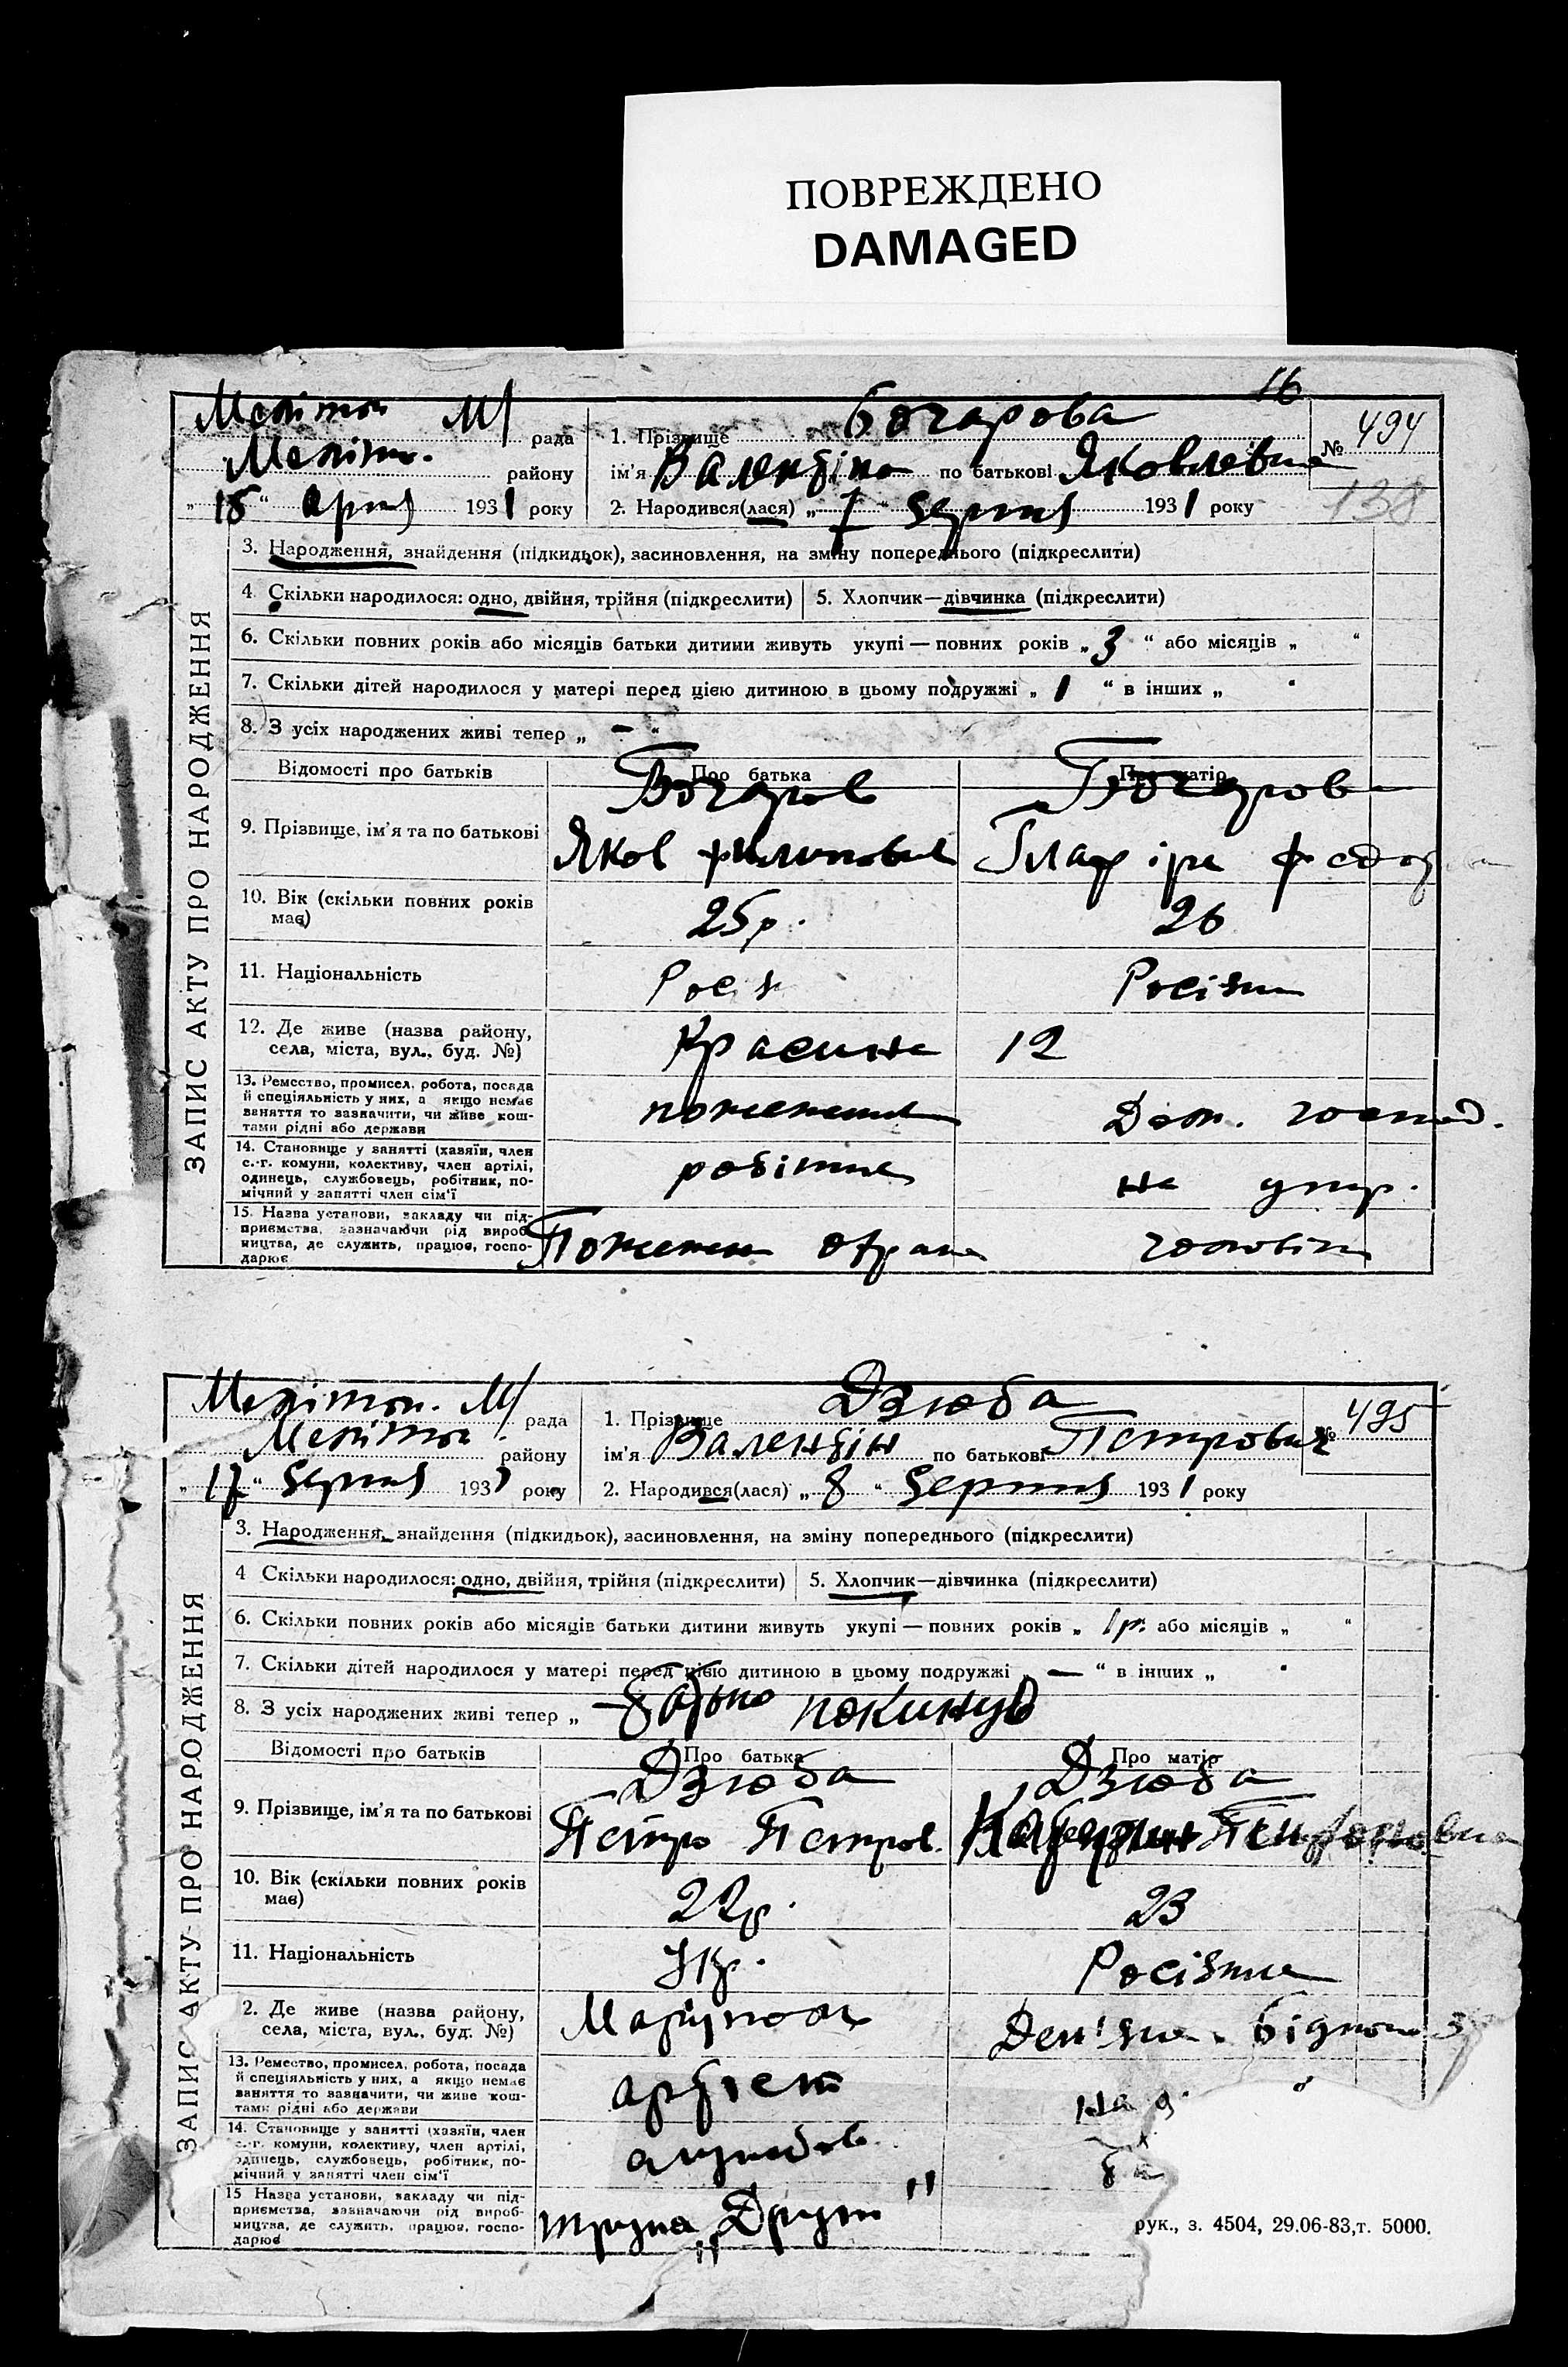 ПОВРЕЖДЕНО
DAMAGED
16
Меліто М/ рада
Меліто. району
"18" 1931 року
1. Прізвище Бочарова
№ 494
ім'я Валентіна по батькові Яковлевна
2. Народився(лася) „7" серпня 1931 року
138
ЗАПИС АКТУ ПРО НАРОДЖЕННЯ
3. Народження, знайдення (підкидьок), засиновлення, на зміну попереднього (підкреслити)
4 Скільки народилося: одно, двійня, трійня (підкреслити) 5. Хлопчик—дівчинка (підкреслити)
6. Скільки повних років або місяців батьки дитини живуть укупі — повних років „3" або місяців „ "
7. Скільки дітей народилося у матері перед цією дитиною в цьому подружжі „1" в інших „ "
8. З усіх народжених живі тепер „ – "
Відомості про батьків Про батька Про матір
9. Прізвище, ім'я та по батькові
Бочаров Бочарова
Яков Филипович Глафіра Федор
10. Вік (скільки повних років має) 25 р. 26
11. Національність Росія Росіянк
12. Де живе (назва району, села, міста, вул., буд. №) Красина 12
13. Ремество, промисел, робота, посада й спеціяльність у них, а якщо немає заняття то зазначити, чи живе коштами рідні або держави
Дом. господ.
14. Становище у занятті (хазяїн, член с.-г. комуни, колективу, член артілі, одинець, службовець, робітник, помічний у занятті член сім'ї
робітник на утр.
15. Назва установи, закладу чи підприємства, зазначаючи рід виробництва, де служить, працює, господарює
Пожежна охрана чоловіка
Мелітоп. М/ рада
Меліто району
"17" серпня 1931 року
1. Прізвище Дзюба
№ 495
ім'я Валентін по батькові Петрович
2. Народився(лася) „8" серпня 1931 року
ЗАПИС АКТУ ПРО НАРОДЖЕННЯ
3. Народження, знайдення (підкидьок), засиновлення, на зміну попереднього (підкреслити)
4 Скільки народилося: одно, двійня, трійня (підкреслити) 5. Хлопчик—дівчинка (підкреслити)
6. Скільки повних років або місяців батьки дитини живуть укупі — повних років „ 1р. або місяців „ "
7. Скільки дітей народилося у матері перед цією дитиною в цьому подружжі „ — " в інших „ "
8. З усіх народжених живі тепер „ – батько покинув
Відомості про батьків Про батька Про матір
9. Прізвище, ім'я та по батькові
Дзюба Дзюба
Петро Петров.
10. Вік (скільки повних років має) 22р. 23
11. Національність Укр. Росіянка
2. Де живе (назва району, села, міста, вул., буд. №) Маріуполь
13. Ремество, промисел, робота, посада й спеціяльність у них, а якщо немає заняття то зазначити, чи живе коштами рідні або держави
артіст на
14. Становище у занятті (хазяїн, член с.-г. комуни, колективу, член артілі, одинець, службовець, робітник, помічний у занятті член сім'ї
службов.
15 Назва установи, закладу чи підприємства, зазначаючи рід виробництва, де служить, працює, господарює
трупа
рук., з. 4504, 29.06-83,т. 5000.